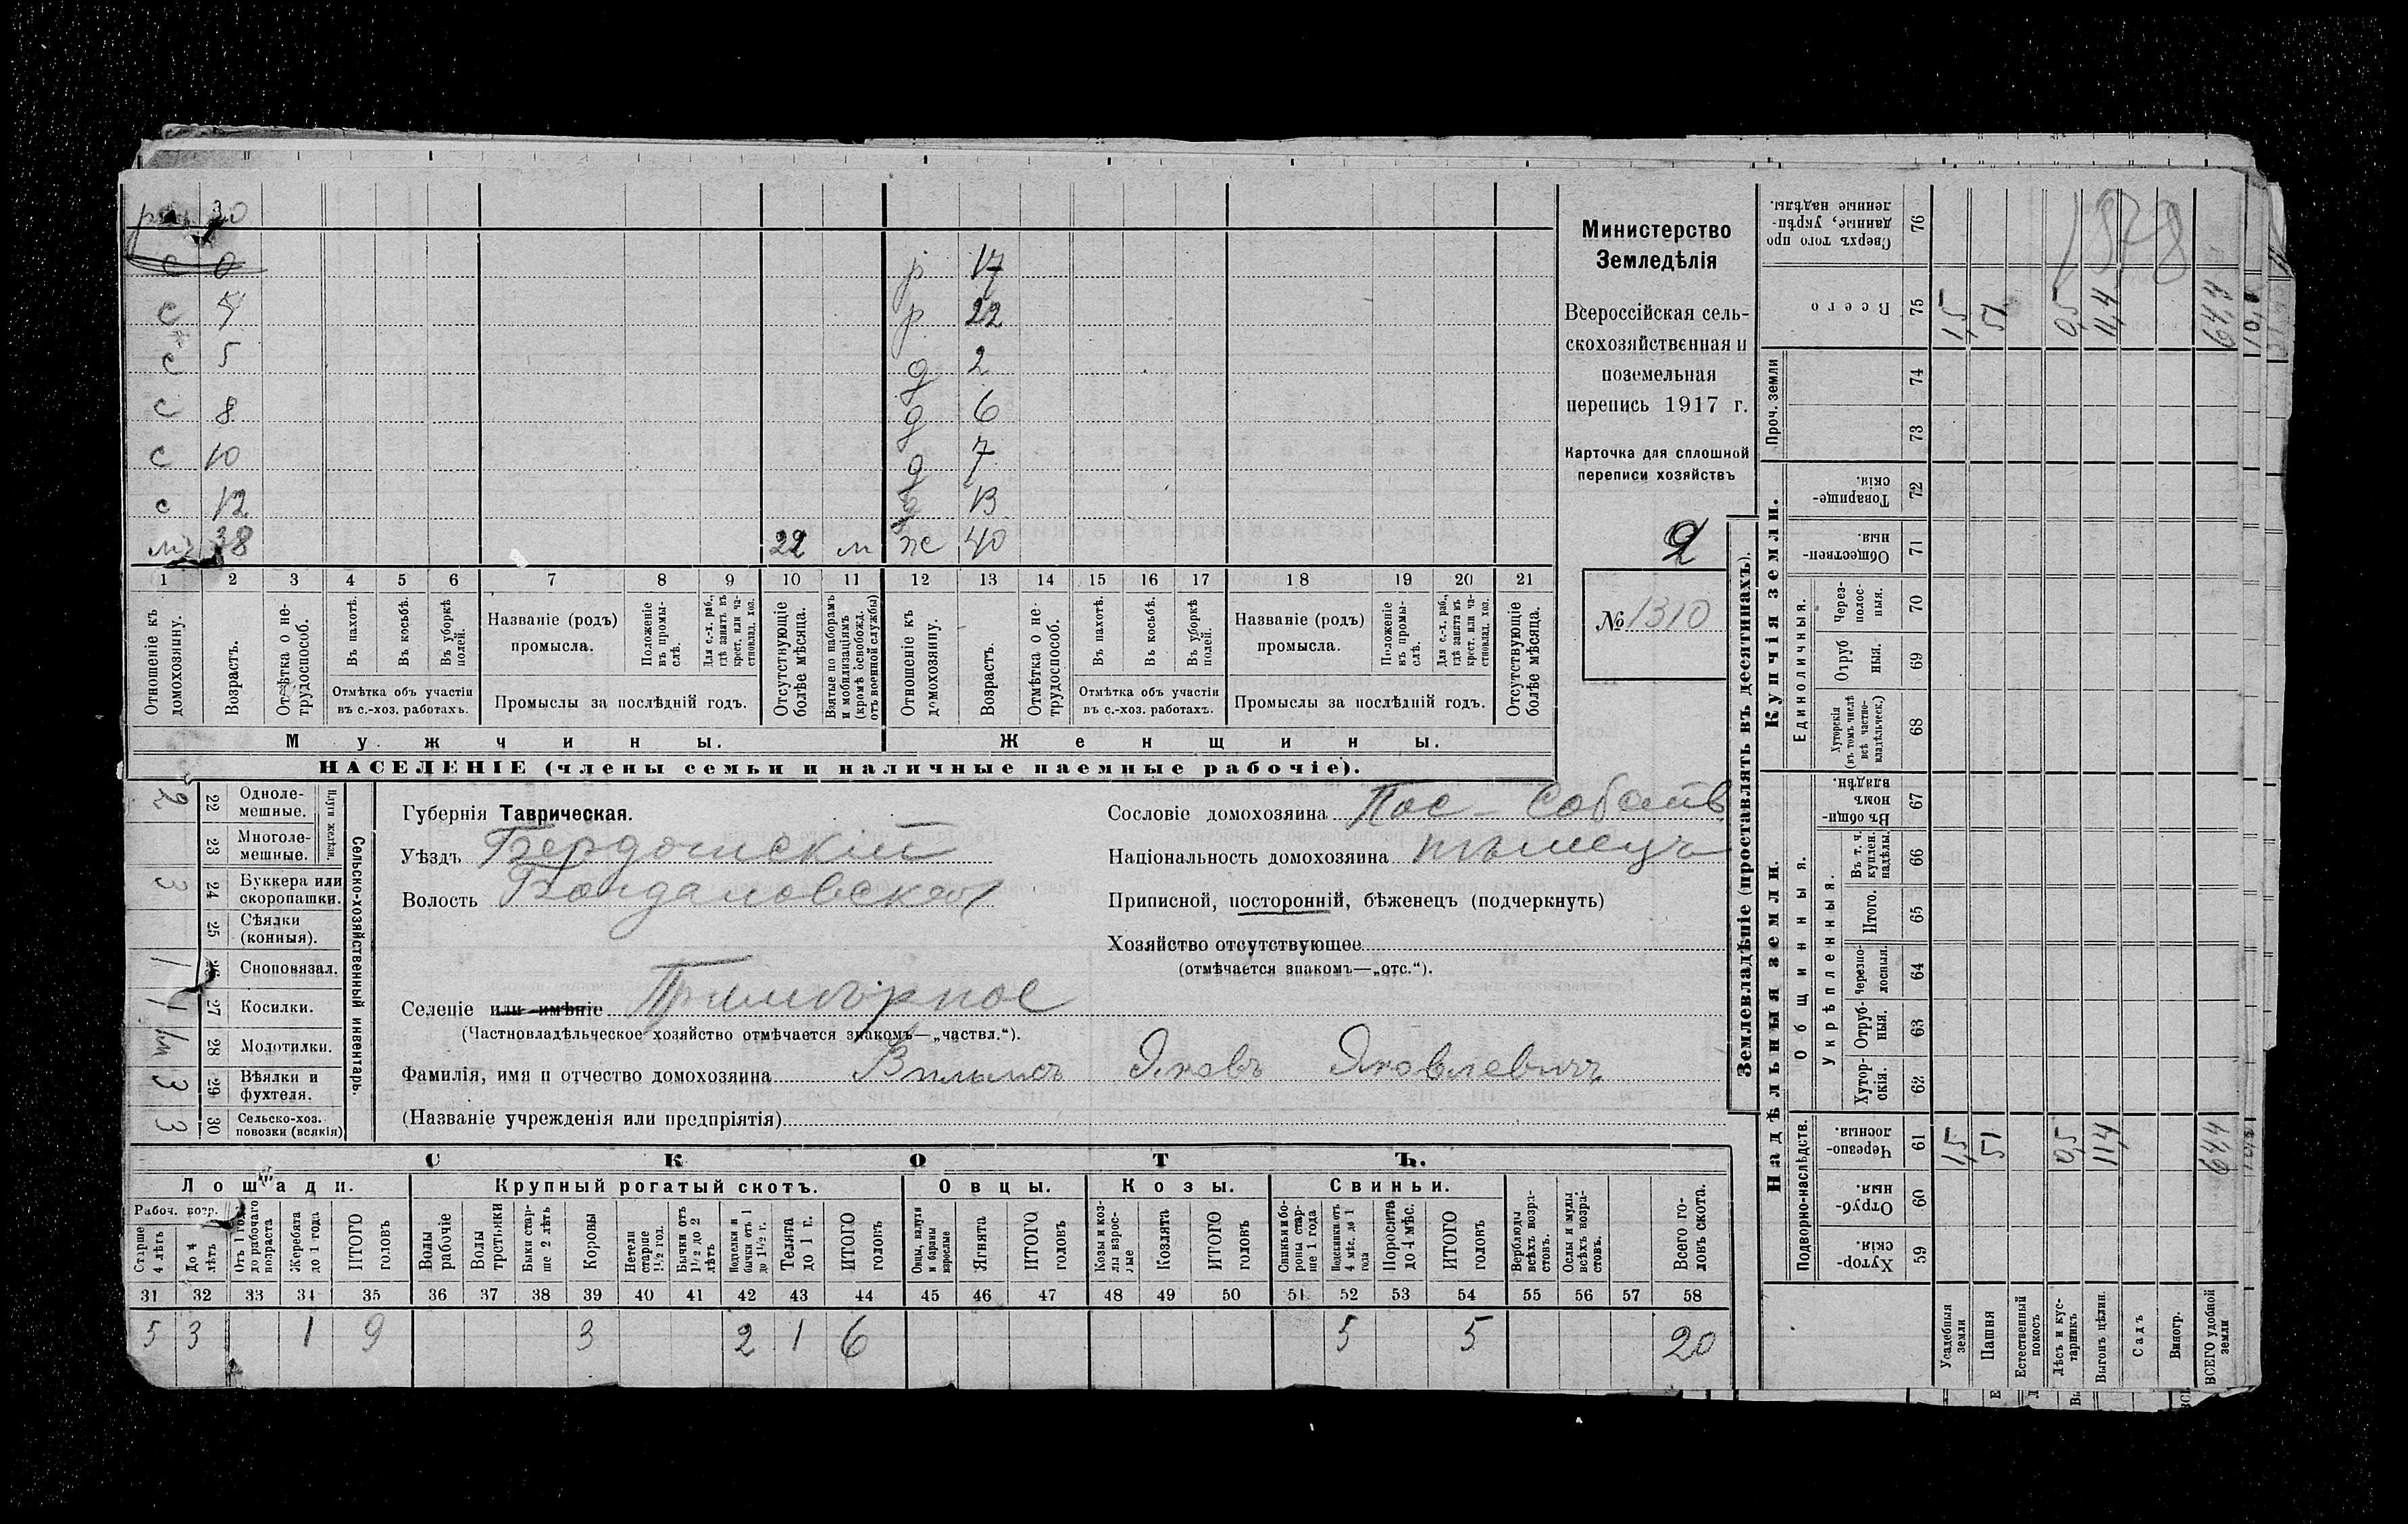 30
с 0
р 17
с 4
р 22
с 5
д 2
с 8
д 6
с 10
д 7
с 12
13
38
22 м
ж 40
1 2 3 4 5 6 7 8 9 10 11 12 13 14 15 16 17 18 19 20 21
Отношеніе къ домохозяину.
Возрастъ.
Отмѣтка о не-трудоспособ.
Въ пахотѣ.
Въ косьбѣ.
Въ уборкѣ полей.
Отмѣтка объ участіи въ с.-хоз. работахъ.
Названіе (родъ) промысла.
Положеніе въ промы-слѣ.
Для с.-х. раб., гдѣ занятъ въ крест. или ча-стновлад. хоз.
Промыслы за послѣдній годъ.
Отсутствующіе болѣе мѣсяца.
Взятые по наборамъ и мобилизаціямъ (кромѣ освобожд. отъ военной службы)
Отношеніе къ домохозяину.
Возрастъ.
Отмѣтка о не-трудоспособ.
Въ пахотѣ.
Въ косьбѣ.
Въ уборкѣ полей.
Отмѣтка объ участіи въ с.-хоз. работахъ.
Названіе (родъ) промысла.
Положеніе въ промы-слѣ.
Для с.-х. раб., гдѣ занята въ крест. или ча-стновлад. хоз.
Промыслы за послѣдній годъ.
Отсутствующіе болѣе мѣсяца.
Мужчины. Женщины.
НАСЕЛЕНІЕ (члены семьи и наличные наемные рабочіе).
Министерство
Земледѣлія
Всероссійская сель-
скохозяйственная и
поземельная
перепись 1917 г.
Карточка для сплошной
переписи хозяйствъ
2
№ 1310
Сельско-хозяйственный инвентарь.
Плуги желѣзн.
2 22 Одноле-мешные.
23 Многоле-мешные.
3 24 Буккера или скоропашки.
25 Сѣялки (конныя).
1 26 Сноповязал.
1 27 Косилки.
28 Молотилки.
3 29 Вѣялки и фухтеля.
3 30 Сельско-хоз. повозки (всякія)
Губернія Таврическая.
Уѣздъ Бердянскій
Волость
Селеніе или имѣніе
(Частновладѣльческое хозяйство отмѣчается знакомъ—„частвл.“).
Фамилія, имя и отчество домохозяина Вильмсъ Яковъ Яковлевичъ
(Названіе учрежденія или предпріятія)
Сословіе домохозяина Пос - Собств
Національность домохозяина нѣмецъ
Приписной, посторонній, бѣженецъ (подчеркнуть)
Хозяйство отсутствующее
(отмѣчается знакомъ—„отс.“).
СКОТЪ.
Лошади. Крупный рогатый скотъ. Овцы. Козы. Свиньи.
Рабоч. возр.
Старше 4 лѣтъ
До 4 лѣтъ
Отъ 1 года до рабочаго возраста
Жеребята до 1 года
ИТОГО головъ
Волы рабочіе
Волы гулевые
Быки стар-ше 2 лѣтъ
Коровы
Нетели старше 1½ год.
Бычки отъ 1½ до 2 лѣтъ
Подтелки и бычки отъ 1 до 1½ г.
Телята до 1 г.
ИТОГО головъ
Овцы, валухи и бараны взрослые
Ягнята
ИТОГО головъ
Козы и коз-лы взрос-лые
Козлята
ИТОГО головъ
Свиньи и бо-ровы стар-ше 1 года
Подсвинки отъ 4 мѣс. до 1 года
Поросята до 4 мѣс.
ИТОГО головъ
Верблюды всѣхъ возра-стовъ.
Ослы и мулы всѣхъ возра-стовъ.
Всего го-ловъ скота.
31 32 33 34 35 36 37 38 39 40 41 42 43 44 45 46 47 48 49 50 51 52 53 54 55 56 57 58
5 3 1 9 3 2 1 6 5 5 20
Землевладѣніе (проставлять въ десятинахъ).
Надѣльныя земли. Купчія земли.
Подворно-наслѣдств.
Общинныя.
Укрѣпленныя.
Единоличныя.
Проч. земли
59 Хутор-скія.
60 Отруб-ныя.
61 Черезпо-лосныя.
62 Хутор-скія.
63 Отруб-ныя.
64 Черезпо-лосныя.
65 Итого.
66 Въ т. ч. куплен. надѣлы.
67 Въ общи-номъ владѣн.
68 Хуторскія (въ томъ числѣ всѣ частно-владѣльческ.)
69 Отруб ныя.
70 Через-полос-ныя.
71 Обществен-ныя.
72 Товарище-скія.
73
74
75 Всего
76 Сверхъ того про даннные, укрѣп-ленные надѣлы.
Усадебныя земли 1,5 1,5
Пашня 51 51
Естественный покосъ
Лѣсъ и кус-тарникъ 0,5 0,5
Выгонъ цѣлин. 11,4 11,4
Садъ
Виногр.
ВСЕГО удобной земли 64,4 64,4